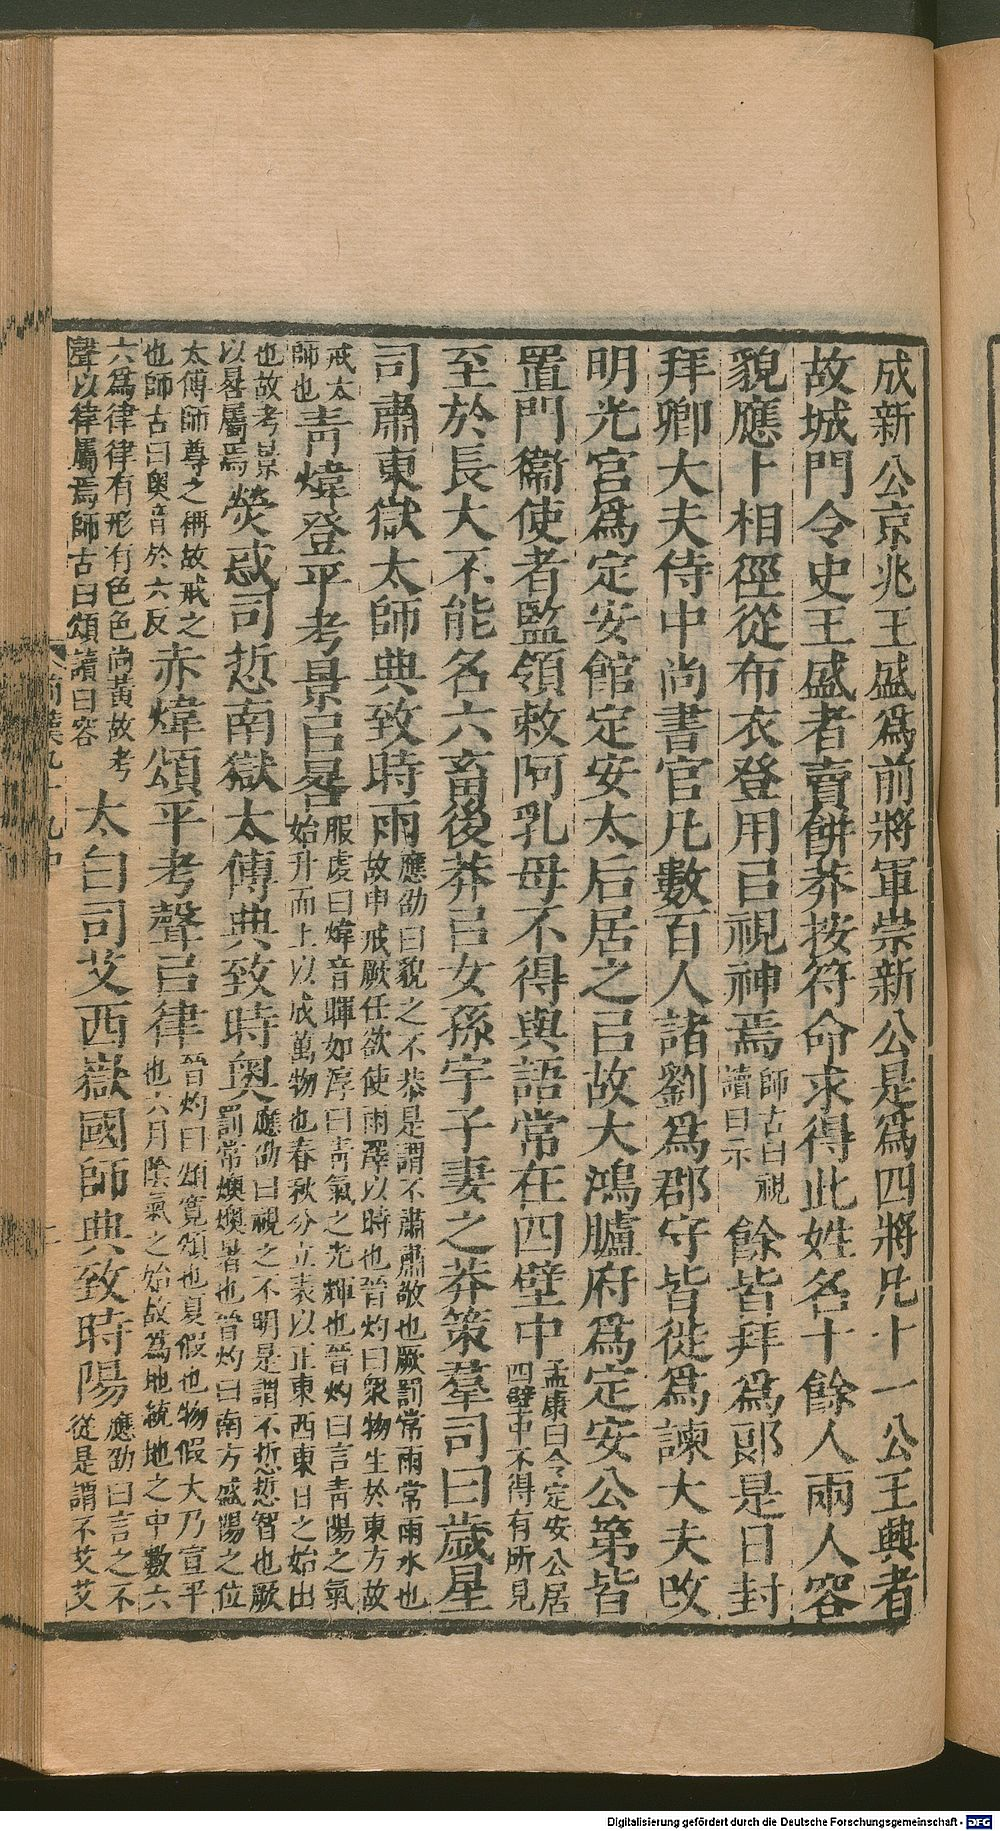 成新公京兆王盛爲前將軍崇新公是爲四將凡十一公王興者
故城門令史王盛者賣餅莽按符命求得此姓名十餘人兩人容
貌應卜相徑從布衣登用㠯視神焉師古曰視讀曰示餘皆拜爲郎是日封
拜卿大夫侍中尚書官凡數百人諸劉爲郡守皆徙爲諫大夫攺
明光宫爲定安館定安太后居之㠯故大鴻臚府爲定安公第皆
置門衞使者監領敕阿乳母不得與語常在四壁中孟康曰令定安公居四壁中不得有所見
至於長大不能名六畜後莽㠯女孫宇子妻之莽策羣司曰歲星
司肅東嶽太師典致時雨應劭曰貌之不恭是謂不肅肅敬也厥罰常雨常雨水也故申戒厥任欲使雨澤以時也晉灼曰衆物生於東方故
戒太師也青煒登平考景㠯晷服虔曰煒音暉如淳曰青氣之光輝也晉灼曰言青陽之氣始升而上以成萬物也春秋分立表以正東西東日之始出
也故考景以晷屬焉熒惑司悊南嶽太傅典致時奥應劭曰視之不明是謂不悊悊智也厥罰常燠燠暑也晉灼曰南方盛陽之位
太傅師尊之稱故戒之也師古曰奥音於六反赤煒頌平考聲㠯律晉灼曰頌寛頌也夏假也物假大乃宣平也六月陰氣之始故爲地統地之中數六
六爲律律有形有色色尚黃故考聲以律屬焉師古曰頌讀曰容太白司艾西嶽國師典致時陽應劭曰言之不從是謂不艾艾
Digitalisierung gefördert durch die Deutsche Forschungsgemeinschaft - DFG